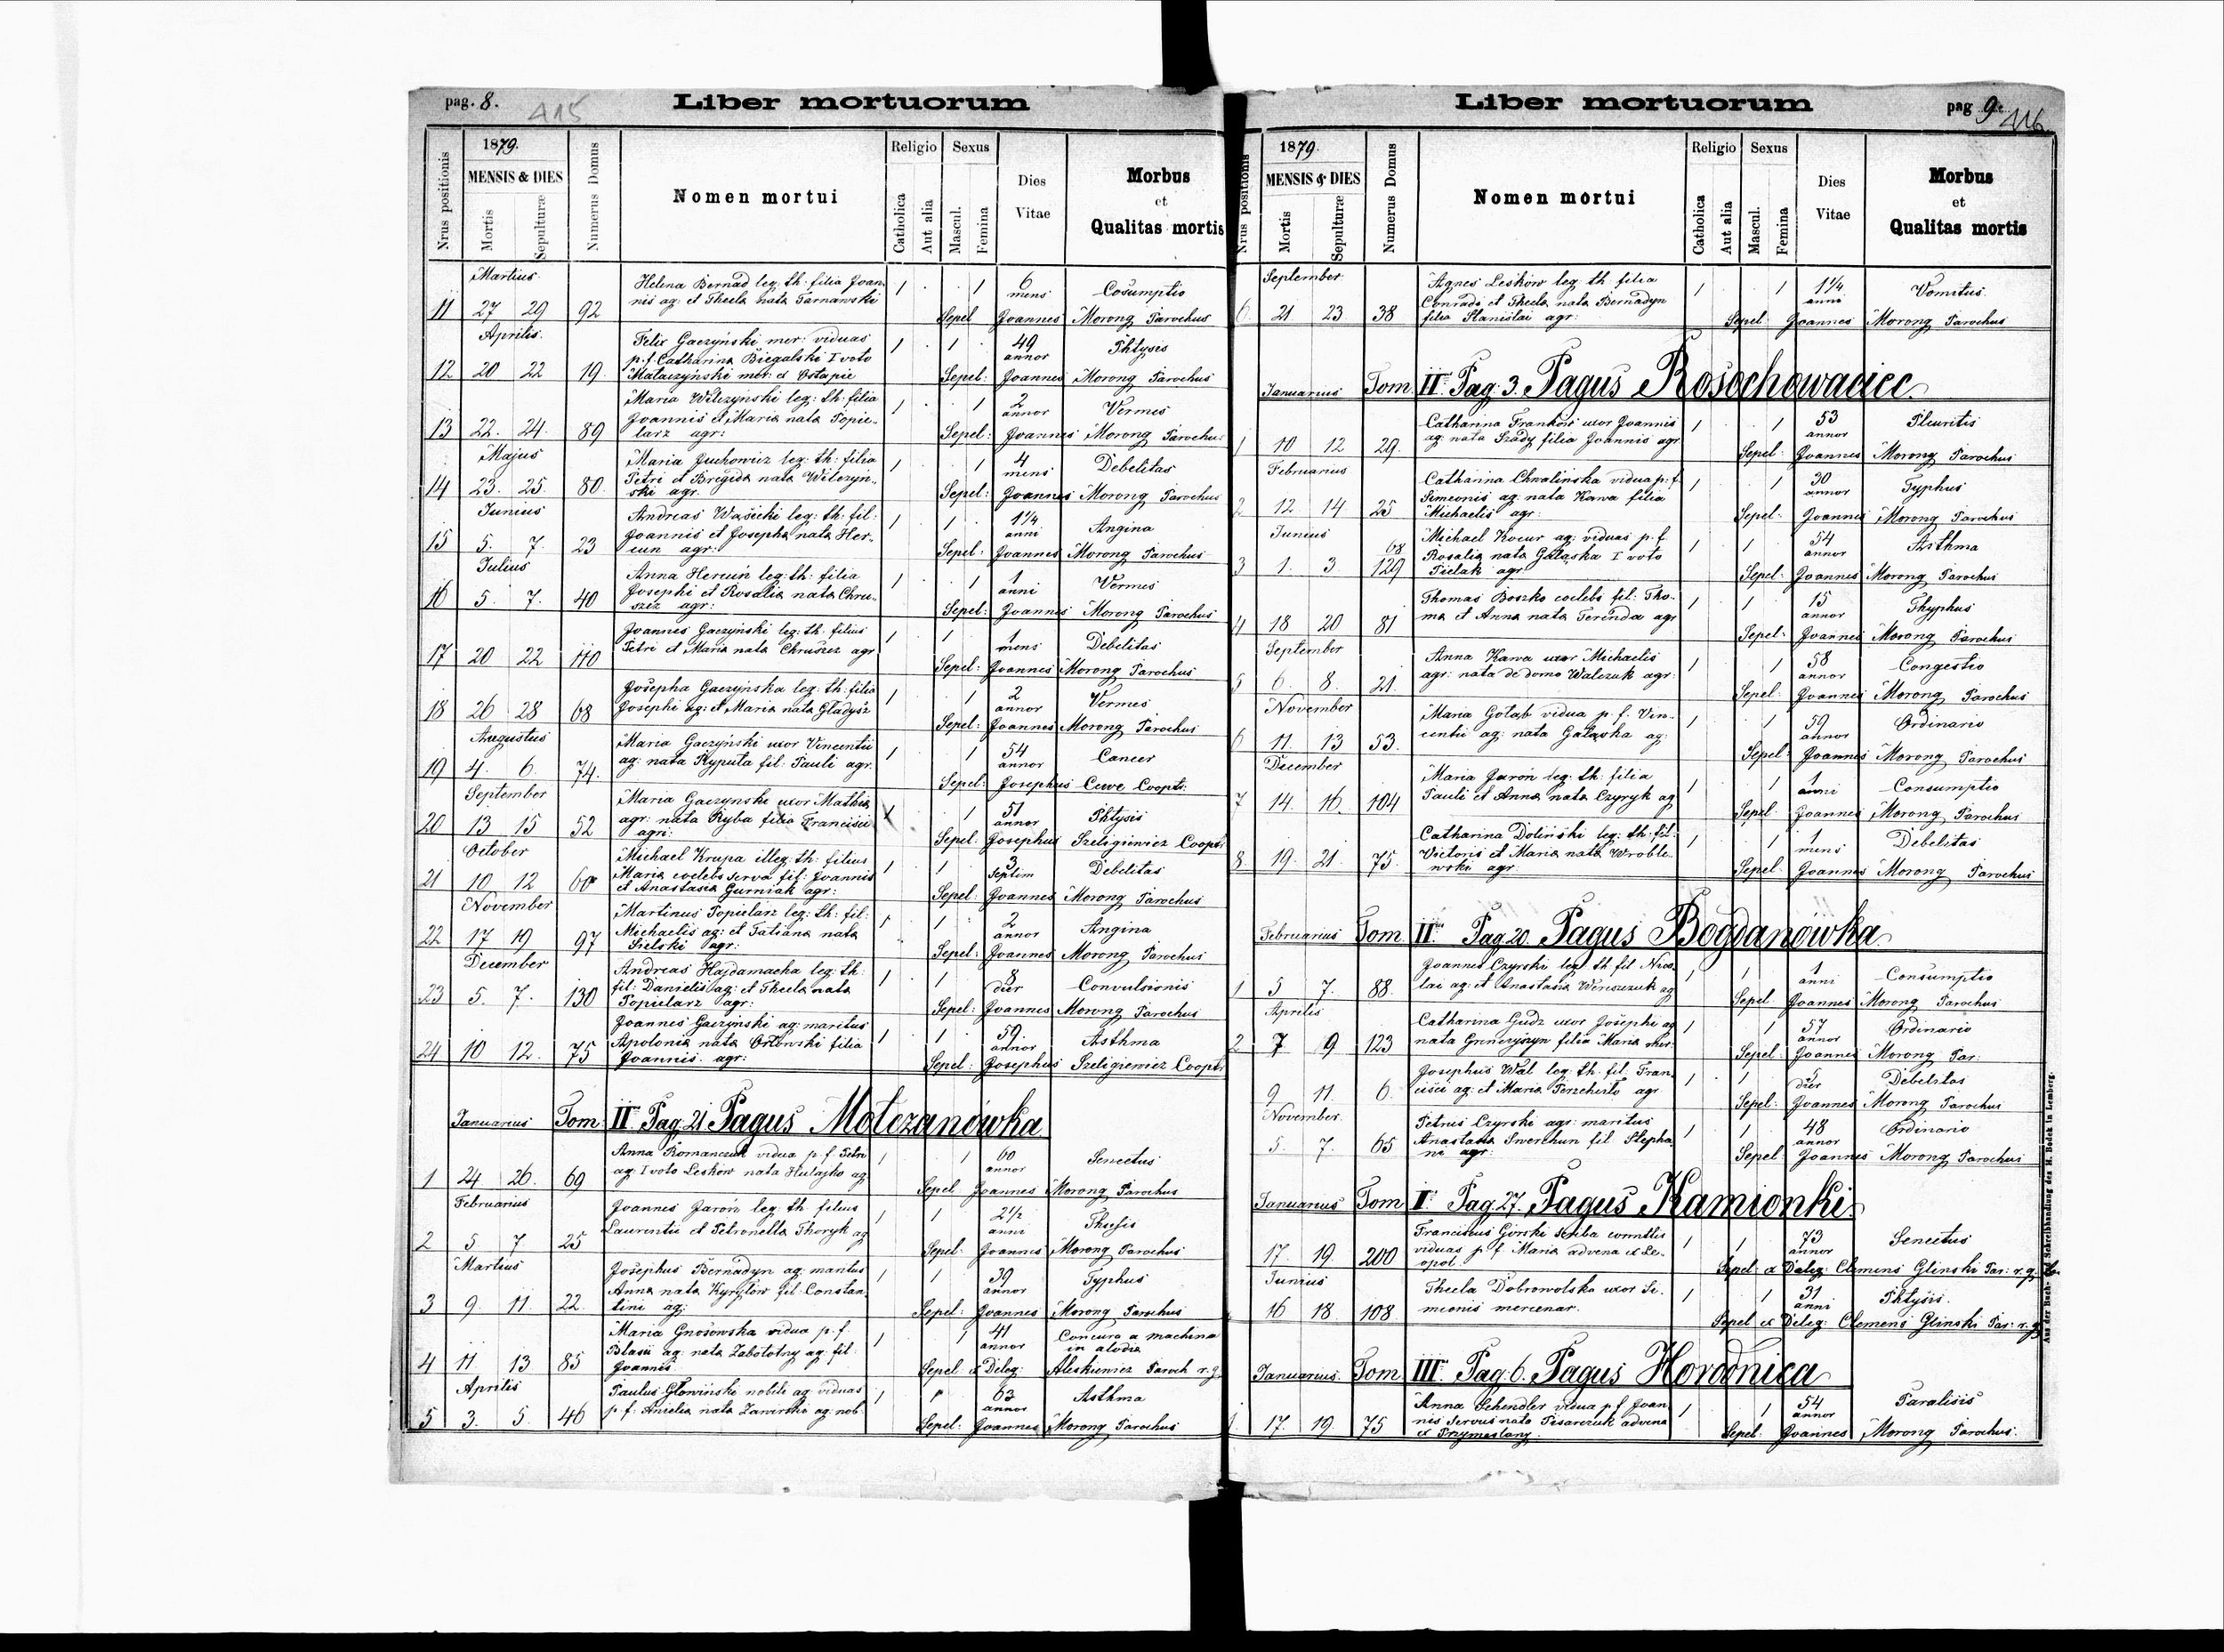 pag. 8.
415
Liber mortuorum
1879.
MENSIS & DIES
Nrus positionis
Mortis
Sepulturæ
Numerus Domus
Nomen mortui
Religio
Catholica
Aut alia
Sexus
Mascul.
Femina
Dies
Vitae
Morbus
et
Qualitas mortis
Martius
Helena Bernad leg: th: filia Joan
nis ag: et Thecla nata Tarnawski
11 27 29 92 1 1 6 mens Cosumptio
Sepel Joannes Morong Parochus
Aprilis
Felix Gaczyński mer: viduus
p. f. Catharina Biegalski I voto
Mataczyński mer: ex Ostapie
12 20 22 19 1 1 49 annor Phtysis
Sepel: Joannes Morong Parochus
Maria Wilczynski leg: th: filia
Joannis et Maria nata Popie-
larz agr:
13 22. 24. 89 1 1 2 annor Vermes
Sepel: Joannes Morong Parochus
Majus
Maria Juchowicz leg: th: filia
Petri et Bregida nata Wilczyń-
ski agr.
14 23. 25 80. 1 1 4 mens Debelitas
Sepel: Joannes Morong Parochus
Junius
Andreas Wasicki leg: th: fil:
Joannis et Josepha nata Her-
cun agr:
15 5. 7. 23 1 1 1 1/4 anni Angina
Sepel: Joannes Morong Parochus
Julius
Anna Hercuń leg: th: filia
Josephi et Rosalia nata Chru-
szcz agr:
16 5. 7. 40 1 1 1 anni Vermes
Sepel: Joannes Morong Parochus
Joannes Gaczyński leg: th: filius
Petri et Maria nata Chruszcz agr
17 20 22 110 1 1 1 mens Debelitas
Sepel: Joannes Morong Parochus
Josepha Gaczyńska leg: th: filia
Josephi ag: et Maria nata Gładysz
18 26 28 68 1 1 2 annor Vermes
Sepel: Joannes Morong Parochus
Augustus
Maria Gaczyński uxor Vincentii
ag: nata Kyputa fil: Pauli agr.
19 4. 6. 74. 1 1 54 annor Cancer
Sepel: Josephus Cuve Cooptr:
September
Maria Gaczynski uxor Mathia
agr: nata Ryba filia Francisci
agri:
20 13 15 52 1 1 51 annor Phtysis
Sepel: Josephus Szeligiewicz Cooptr
October
Michael Krupa illeg: th: filius
Maria coelebs serva fil: Joannis
et Anastasia Gurniak agr:
21 10 12 60 1 1 3 septim Debelitas
Sepel: Joannes Morong Parochus
November
Martinus Popielarz leg: th: fil:
Michaelis ag: et Tatiana nata
Sielski agr:
22 17 19 97 1 1 2 annor Angina
Sepel: Joannes Morong Parochus
December
Andreas Hajdamacha leg: th:
fil: Danielis ag: et Thecla nata
Popielarz agr:
23 5. 7. 130 1 1 8 dier Convulsionis
Sepel: Joannes Morong Parochus
Joannes Gaczyński ag: maritus
Apolonia nata Orłowski filia
Joannis. agr:
24 10 12. 75 1 1 59. annor Asthma
Sepel: Josephus Szeligiewicz Cooptr
Januarius Tom: II. Pag. 21 Pagus Mołczanówka
Anna Romanczuk vidua p. f. Petri
ag: I voto Leskow nata Hulajko ag
1 24 26. 69 1 1 60 annor Senectus
Sepel Joannes Morong Parochus
Februarius
Joannes Jaroń leg: th: filius
Laurentii et Petronella Thoryk ag
2 5 7. 25 1 1 2 1/2 anni Thusis
Sepel: Joannes Morong Parochus
Martius
Josephus Bernadyn ag: maritus
Anna nata Kyryłow fil: Constan-
tini ag:
3 9. 11. 22. 1 1 39 annor Typhus
Sepel: Joannes Morong Parochus
Maria Gnosowska vidua p. f.
Blasii ag: nata Zabołotny ag: fil:
Joannes
4 11. 13. 85 1 1 41 annor a machina
in
Sepel: ex Deleg: Aleskiewicz Paroch r. g.
Aprilis
Paulus Głowiński nobili ag: viduus
p. f: Anielia nata Zawirski ag: nob:
5 3. 5. 46 1 1 62 annor Asthma
Sepel: Joannes Morong Parochus
Liber mortuorum
pag 9.
416.
1879.
MENSIS & DIES
Nrus positionis
Mortis
Sepulturæ
Numerus Domus
Nomen mortui
Religio
Catholica
Aut alia
Sexus
Mascul.
Femina
Dies
Vitae
Morbus
et
Qualitas mortis
September
Agnes Leskow leg: th: filia
Conradi et Thecla nata Bernadyn
filia Stanislai agr:
6. 21 23. 38 1 1 1 1/4 anni Vomitus
Sepel: Joannes Morong Parochus
Januarius Tom. II. Pag: 3. Pagus Rosochowaciec.
Catharina Franków uxor Joannis
ag: nata Szady filia Joannis agr
1 10 12 29. 1 1 53 annor Pleuritis
Sepel: Joannes Morong Parochus
Februarius
Catharina Chwalinska vidua p: f.
Simeonis ag: nata Kawa filia
Michaelis agr:
2 12 14 25 1 1 30 annor Typhus
Sepel: Joannes Morong Parochus
Junius
Michael Kocur ag: viduus p. f.
Rosalia nata Gałąska I voto
Pielak agr:
3 1. 3 68 129 1 1 54 annor Asthma
Sepel: Joannes Morong Parochus
Thomas Boszko coelebs fil: Tho-
ma et Anna nata Ferenda agr
4 18 20 81 1 1 15 annor Thyphus
Sepel: Joannes Morong Parochus
September
Anna Kawa uxor Michaelis
agr: nata de domo Walczuk agr:
5 6. 8. 21. 1 1 58 annor Congestio
Sepel: Joannes Morong Parochus
November
Maria Gołąb vidua p. f. Vin-
centii ag: nata Gałąska ag:
6 11. 13 53. 1 1 59 annor Ordinario
Sepel: Joannes Morong Parochus
December
Maria Jaroń leg: th: filia
Pauli et Anna nata Czyryk ag
7 14. 16. 104 1 1 1 anni Consumptio
Sepel Joannes Morong Parochus
Catharina Doliński leg: th: fil:
Victoris et Maria nata Wroble-
wski agr
8. 19. 21. 75. 1 1 1 mens Debelitas
Sepel Joannes Morong Parochus
Februarius Tom. II. Pag. 20. Pagus Bogdanówka.
Joannes Czyrski leg: th fil Nico-
lai ag: et Anastasia ag
1 5 7. 88. 1 1 1 anni Consumptio
Sepel Joannes Morong Parochus
Aprilis
Catharina Gudz uxor Josephi ag
nata filia Maria mer:
2 7 9 123 1 1 57 annor Ordinario
Sepel: Joannes Morong Par:
Josephus Wal leg: th: fil: Fran-
cisci ag: et Maria agr
9. 11. 6. 1 1 5 dier Debelitas
Sepel: Joannes Morong Parochus
November
Petrus Czyrski agr: maritus
Anastasia Swerchun fil Stepha-
ni agr:
5. 7. 65 1 1 48 annor Ordinario
Sepel: Joannes Morong Parochus
Januarius Tom. I. Pag. 27. Pagus Kamionki.
Franciscus Gorski scriba
viduus p. f. Maria advena ex Le-
opol.
17. 19. 200 1 1 73 annor Senectus
Sepel: ex Deleg: Clemens Glinski Par: r. g.
Junius
Thecla Dobrowolska uxor Si-
meonis mercenar.
16 18 108. 1 1 31 anni Phtysis.
Sepel ex Deleg: Clemens Glinski Par: r. g.
Januarius. Tom. III. Pag. 6. Pagus Horodnica
Anna Schendler vidua p f Joan-
nis servus nata Pisarczuk advena
ex
1. 17. 19. 75 1 1 54 annor Paralisis
Sepel: Joannes Morong Parochus.
Aus der Buch- und Schreibhandlung des H. Bodek in Lemberg.